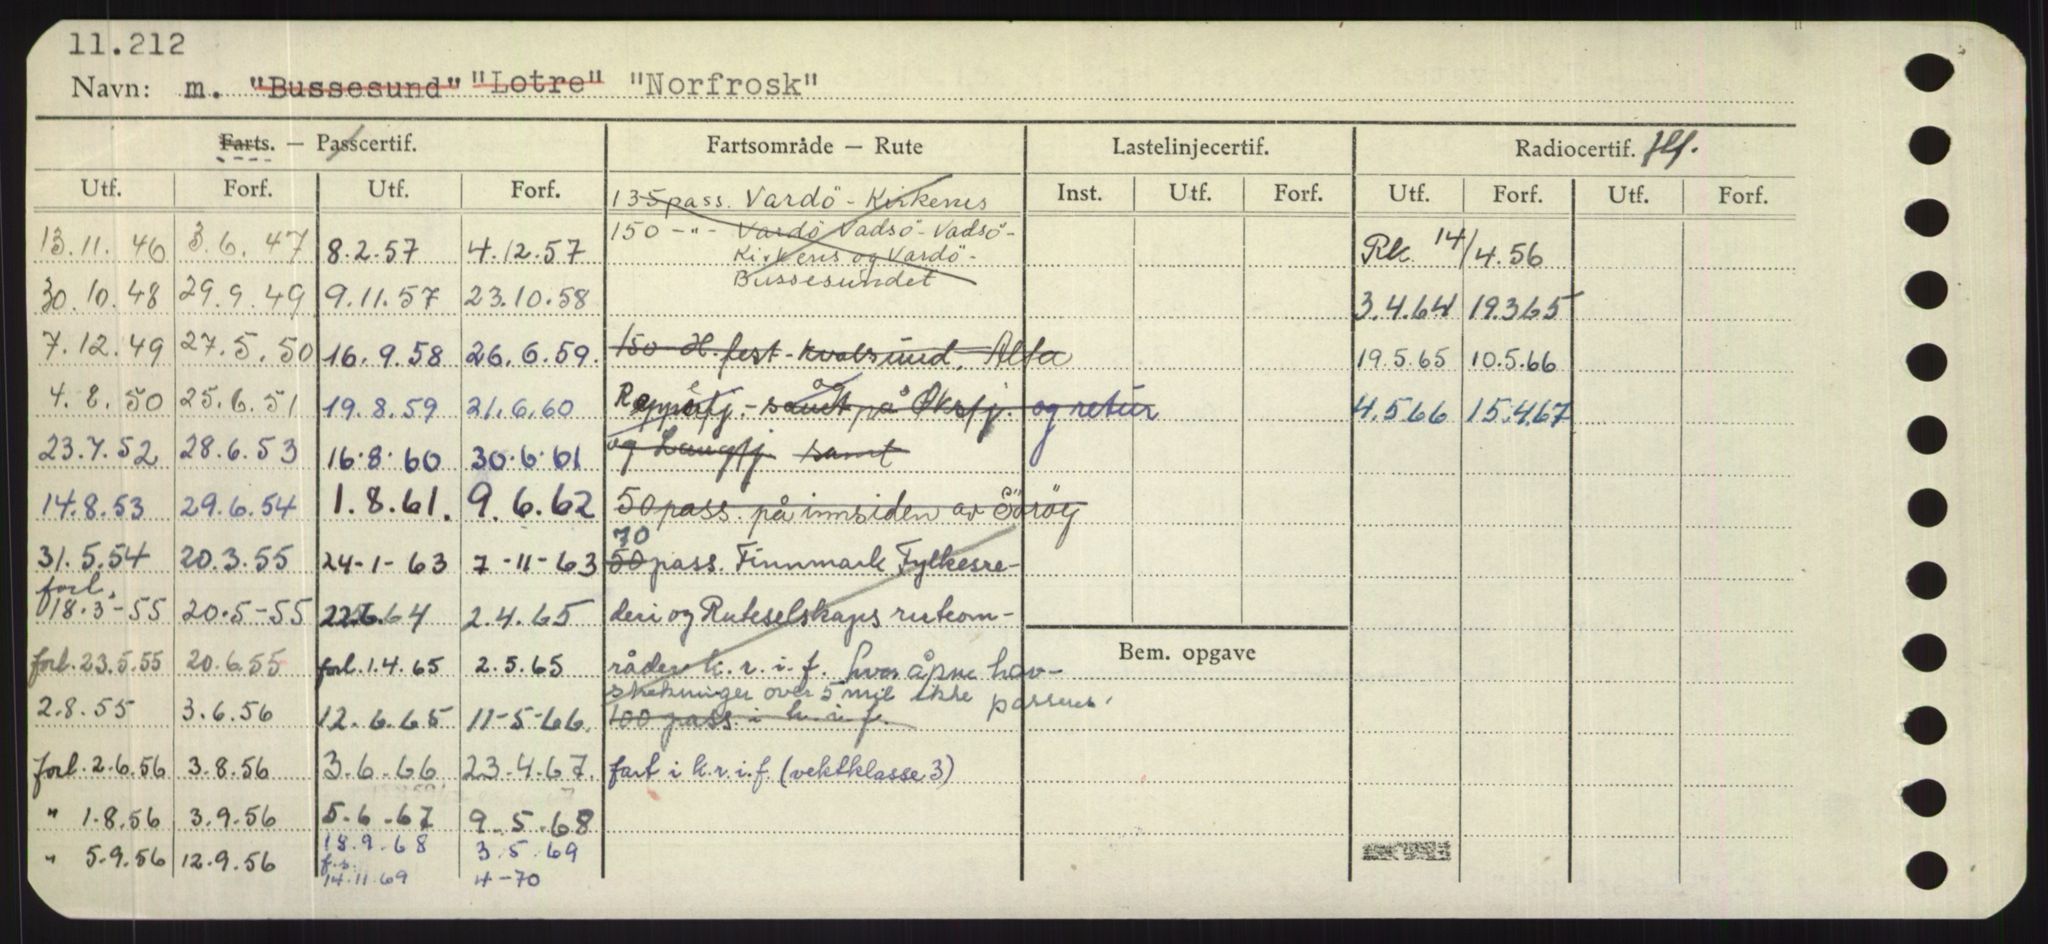 11.212
Navn: m. "Bussesund" "Lotre" "Norfrosk"
Farts. — Passcertif.
Fartsområde — Rute
Lastelinjecertif.
Radiocertif.
Utf. Forf. Utf. Forf. Inst. Utf. Forf. Utf. Forf. Utf. Forf.
135 pass. Vardö - Kirkenes
150 -"- Vardö Vadsö - Vadsö -
Kirkenes og Vardö -
Bussesundet
13.11.46 3.6.47 8.2.57 4.12.57 Rk 14/4.56
30.10.48 29.9.49 9.11.57 23.10.58 3.4.64 19.3.65
7.12.49 27.5.50 16.9.58 26.6.59. 150 H.fest - Kvalsund. Alta 19.5.65 10.5.66
4.8.50 25.6.51 19.8.59 21.6.60 Repparfj. - og samt på Øksfj. og retur 4.5.66 15.4.67
23.7.52 28.6.53 16.8.60 30.6.61 og Langfj samt
14.8.53 29.6.54 1.8.61. 9.6.62 50 pass. på innsiden av Söröy
70
31.5.54 20.3.55 24-1-63 7-11-63 50 pass. Finnmark Fylkesre-
forl. 18.3-55 20.5-55 22.6.64 2.4.65 deri og Ruteselskaps ruteom-
Bem. opgave
forl. 23.5.55 20.6.55 forl. 1.4.65 2.5.65 råder k.r.i.f. hvor åpne hav-
strekninger over 5 mil ikke passeres.
2.8.55 3.6.56 12.6.65 11-5-66. 100 pass. i k.i.f.
forl. 2.6.56 3.8.56 3.6.66 23.4.67. fart i k.r.i.f. (vektklasse 3)
" 1.8.56 3.9.56 5.6.67 9.5.68
18.9.68 3.5.69
" 5.9.56 12.9.56
14.11.69 4-70